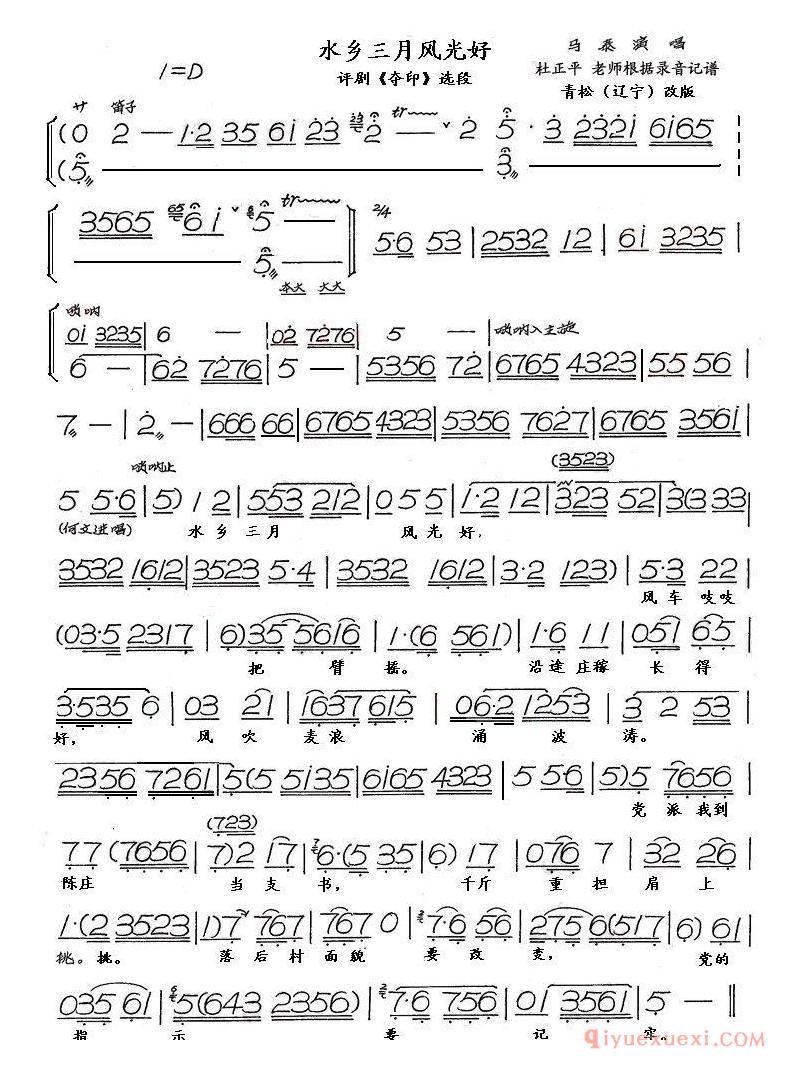 水乡三月风光好
马泰演唱
1=D
评剧《夺印》选段
杜正平 老师根据录音记谱
青松（辽宁）改版
サ 笛子
(0 2 — 1·2 35 6i 23 2 — 2 5·3 2321 6i65
(5 3
3565 6i 5 —
5
2/4
5·6 53 | 2532 12 | 6i 3235 |
唢呐
唢呐入主旋
0i 3235 | 6 — | 02 7276 | 5 — |
6 — | 62 7276 | 5 — | 5356 72 | 6765 4323 | 55 56 |
7 — | 2 — | 666 66 | 6765 4323 | 5356 7627 | 6765 3561 |
唢呐止
(3523)
5 5·6 | 5) 12 | 553 212 | 055 | 1·212 | 323 52 | 3(3 33
(何文进唱) 水乡三月 风光好，
3532 1612 | 3523 5·4 | 3532 1612 | 3·2 123) | 5·3 22 |
风车吱吱
(03·5 2317 | 6)35 5616 | 1·(6 561) | 1·6 11 | 051 65 |
把臂摇。 沿途庄稼长得
3·535 6 | 03 21 | 1637 615 | 06·2 1253 | 3 2 53 |
好， 风吹麦浪 涌波涛。
2356 7261 | 5(5 5135 | 6165 4323 | 5 5·6 | 5)5 7656 |
党派我到
(723)
77 (7656 | 7)2 17 | 6·(5 35 | 6) 17 | 076 7 | 32 26 |
陈庄 当支书， 千斤重担肩上
1·(2 3523 | 1)7 767 | 767 0 | 7·6 56 | 275 6(517 | 6) 61 |
挑。挑。 落后村面貌要改变， 党的
035 61 | 5(643 2356) | 7·6 756 | 01 3561 | 5 — ‖
指示要记牢。
qiyuexuexi.com